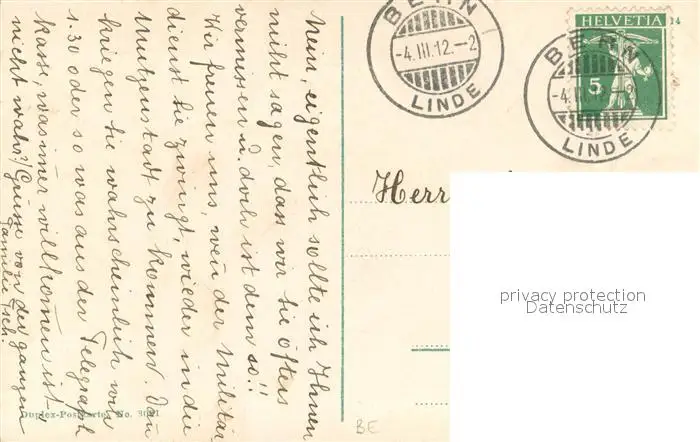 Nein, eigentlich sollte ich Ihnen
nicht sagen, dass wir Sie öfters
vermissen u. doch ist dem so!!
Wir freuen uns, wenn der Militär
dienst Sie zwingt, wieder in die
Mutzenstadt zu kommen. Dann
kriegen Sie wahrscheinlich wie
1.30 oder so was aus der Telegraph
kasse, was imer willkommen ist –
nicht wahr?/ Grüsse von der ganzen
Familie
BERN
-4.III.12.-2
LINDE
HELVETIA
5
BERN
-4.III.12.-2
LINDE
14
Herr
privacy protection
Datenschutz
Duplex-Postkarten No. 3021
BE